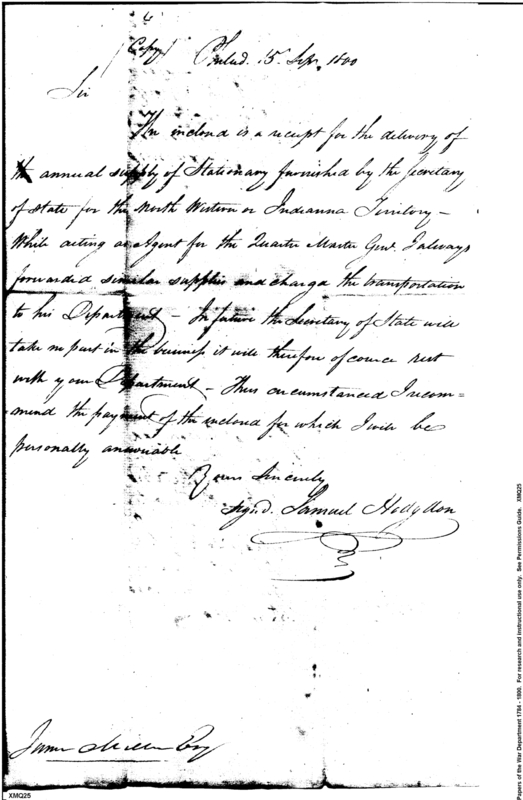 (Copy) Philad. 15. Sepr. 1800
Sir
The inclosd is a receipt for the delivery of
the annual supply of Stationary furnished by the Secretary
of state for the North Western or Indianna Territory —
While acting as Agent for the Quarter Master Genl. I always
forwarded similar supplies and chargd the transportation
to his Department — In future the Secretary of State will
take no part in the business it will therefore of course rest
with your Department — Thus circumstanced I recom=
mend the payment of the inclosed for which I will be
personally answerable
Yours Sincerely
Signd. Samuel Hodgdon
James Miller Esq
XMQ25
Papers of the War Department 1784 - 1800. For research and instructional use only. See Permissions Guide. XMQ25